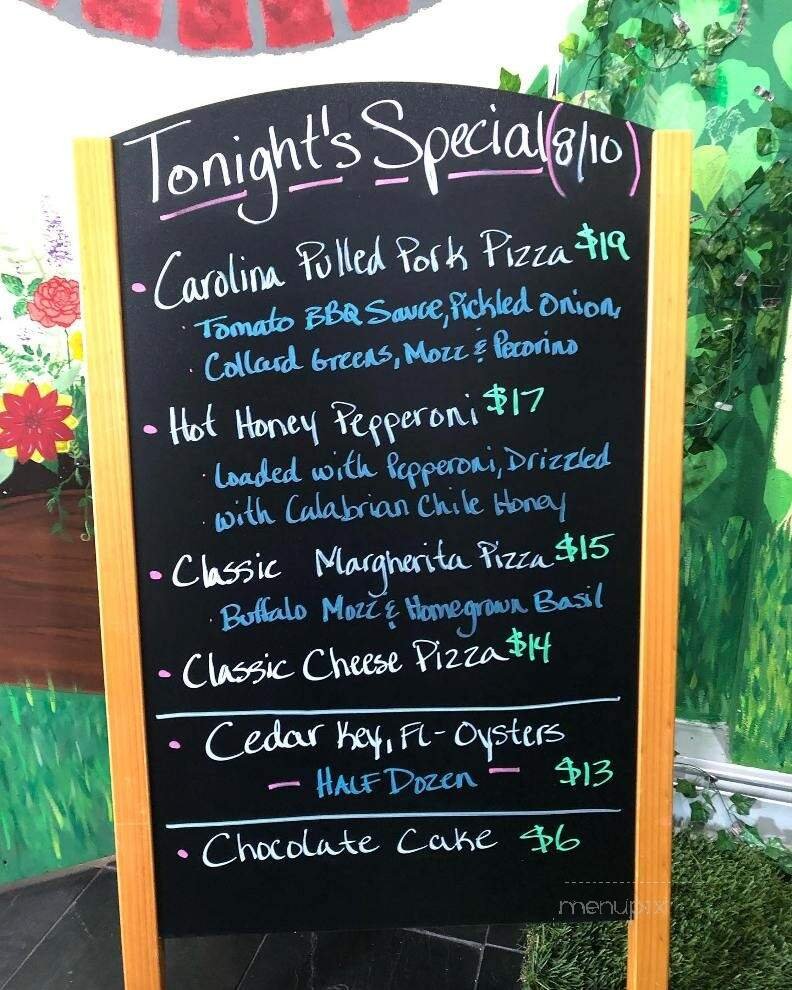 Tonight's Special (8/10)
• Carolina Pulled Pork Pizza $19
· Tomato BBQ Sauce, Pickled Onion,
· Collard Greens, Mozz & Pecorino
• Hot Honey Pepperoni $17
· Loaded with Pepperoni, Drizzled
· with Calabrian Chile Honey
• Classic Margherita Pizza $15
· Buffalo Mozz & Homegrown Basil
• Classic Cheese Pizza $14
• Cedar Key, FL - Oysters
— HALF DOZEN — $13
• Chocolate Cake $6
menupix